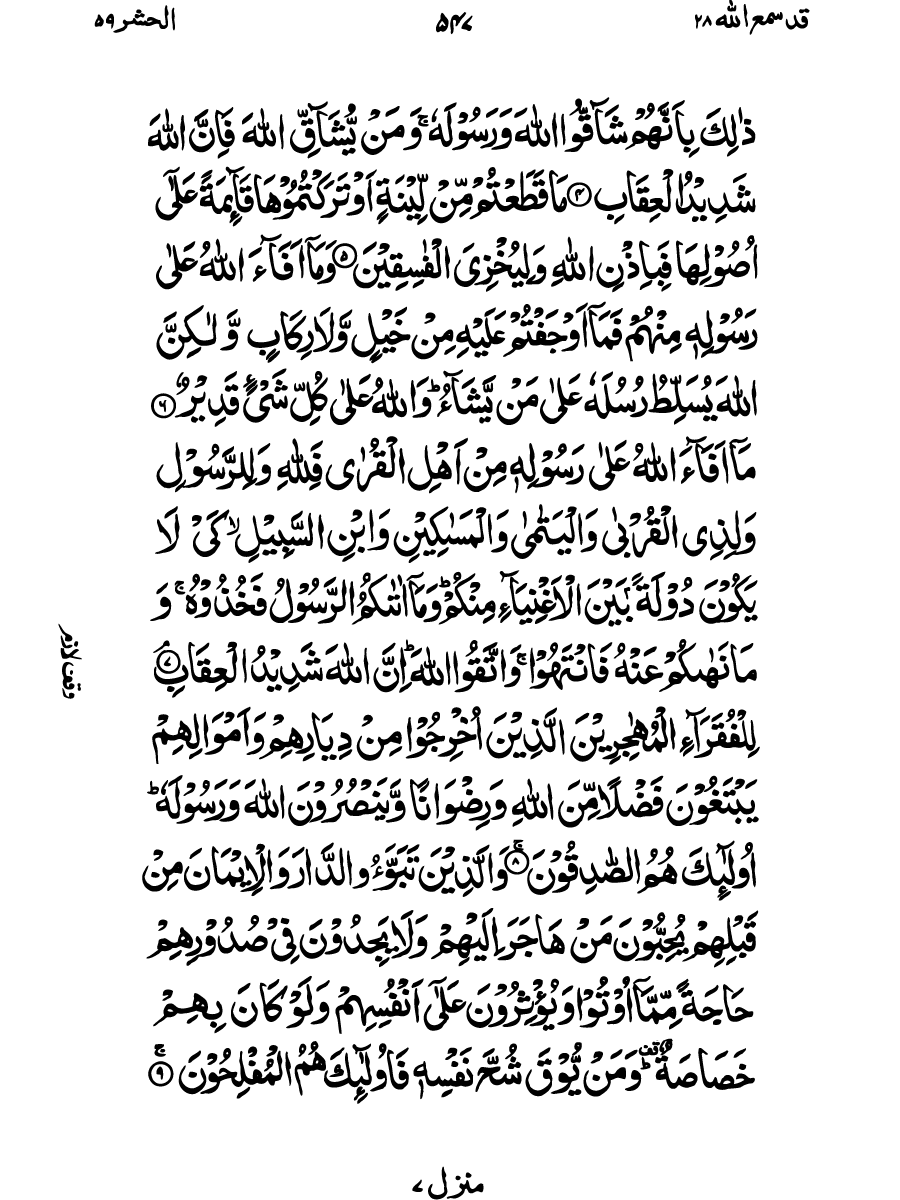 قد سمع اللّٰه ۲۸
۵۴۷
الحشر ۵۹
ذٰلِكَ بِاَنَّهُمْ شَآقُّوا اللّٰهَ وَرَسُوْلَهٗ ۚ وَمَنْ يُّشَآقِّ اللّٰهَ فَاِنَّ اللّٰهَ
شَدِيْدُ الْعِقَابِ ۴ مَا قَطَعْتُمْ مِّنْ لِّيْنَةٍ اَوْ تَرَكْتُمُوْهَا قَآئِمَةً عَلٰٓى
اُصُوْلِهَا فَبِاِذْنِ اللّٰهِ وَلِيُخْزِىَ الْفٰسِقِيْنَ ۵ وَمَآ اَفَآءَ اللّٰهُ عَلٰى
رَسُوْلِهٖ مِنْهُمْ فَمَآ اَوْجَفْتُمْ عَلَيْهِ مِنْ خَيْلٍ وَّلَا رِكَابٍ وَّلٰكِنَّ
اللّٰهَ يُسَلِّطُ رُسُلَهٗ عَلٰى مَنْ يَّشَآءُ ؕ وَاللّٰهُ عَلٰى كُلِّ شَىْءٍ قَدِيْرٌ ۶
مَآ اَفَآءَ اللّٰهُ عَلٰى رَسُوْلِهٖ مِنْ اَهْلِ الْقُرٰى فَلِلّٰهِ وَلِلرَّسُوْلِ
وَلِذِى الْقُرْبٰى وَالْيَتٰمٰى وَالْمَسٰكِيْنِ وَابْنِ السَّبِيْلِ ۙ كَىْ لَا
يَكُوْنَ دُوْلَةًۢ بَيْنَ الْاَغْنِيَآءِ مِنْكُمْ ؕ وَمَآ اٰتٰىكُمُ الرَّسُوْلُ فَخُذُوْهُ ۚ وَ
مَا نَهٰىكُمْ عَنْهُ فَانْتَهُوْا ۚ وَاتَّقُوا اللّٰهَ ؕ اِنَّ اللّٰهَ شَدِيْدُ الْعِقَابِ ۘ ۷
وقف لازم
لِلْفُقَرَآءِ الْمُهٰجِرِيْنَ الَّذِيْنَ اُخْرِجُوْا مِنْ دِيَارِهِمْ وَاَمْوَالِهِمْ
يَبْتَغُوْنَ فَضْلًا مِّنَ اللّٰهِ وَرِضْوَانًا وَّيَنْصُرُوْنَ اللّٰهَ وَرَسُوْلَهٗ ؕ
اُولٰٓئِكَ هُمُ الصّٰدِقُوْنَ ۚ ۸ وَالَّذِيْنَ تَبَوَّءُو الدَّارَ وَالْاِيْمَانَ مِنْ
قَبْلِهِمْ يُحِبُّوْنَ مَنْ هَاجَرَ اِلَيْهِمْ وَلَا يَجِدُوْنَ فِىْ صُدُوْرِهِمْ
حَاجَةً مِّمَّآ اُوْتُوْا وَيُؤْثِرُوْنَ عَلٰٓى اَنْفُسِهِمْ وَلَوْ كَانَ بِهِمْ
خَصَاصَةٌ ؕ قف وَمَنْ يُّوْقَ شُحَّ نَفْسِهٖ فَاُولٰٓئِكَ هُمُ الْمُفْلِحُوْنَ ۚ ۹
منزل ۷